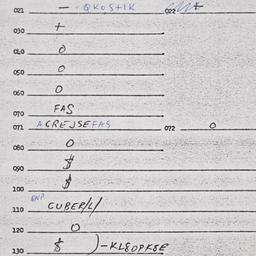 021 — QKOS+1K 022 +
030 +
040 0
050 0
060 0
070 FAS
071 AGREJSEFAS 072 0
080 0
090 $
100 $
110 CUBER/L/
120 0
130 $ )-KL80PK8E